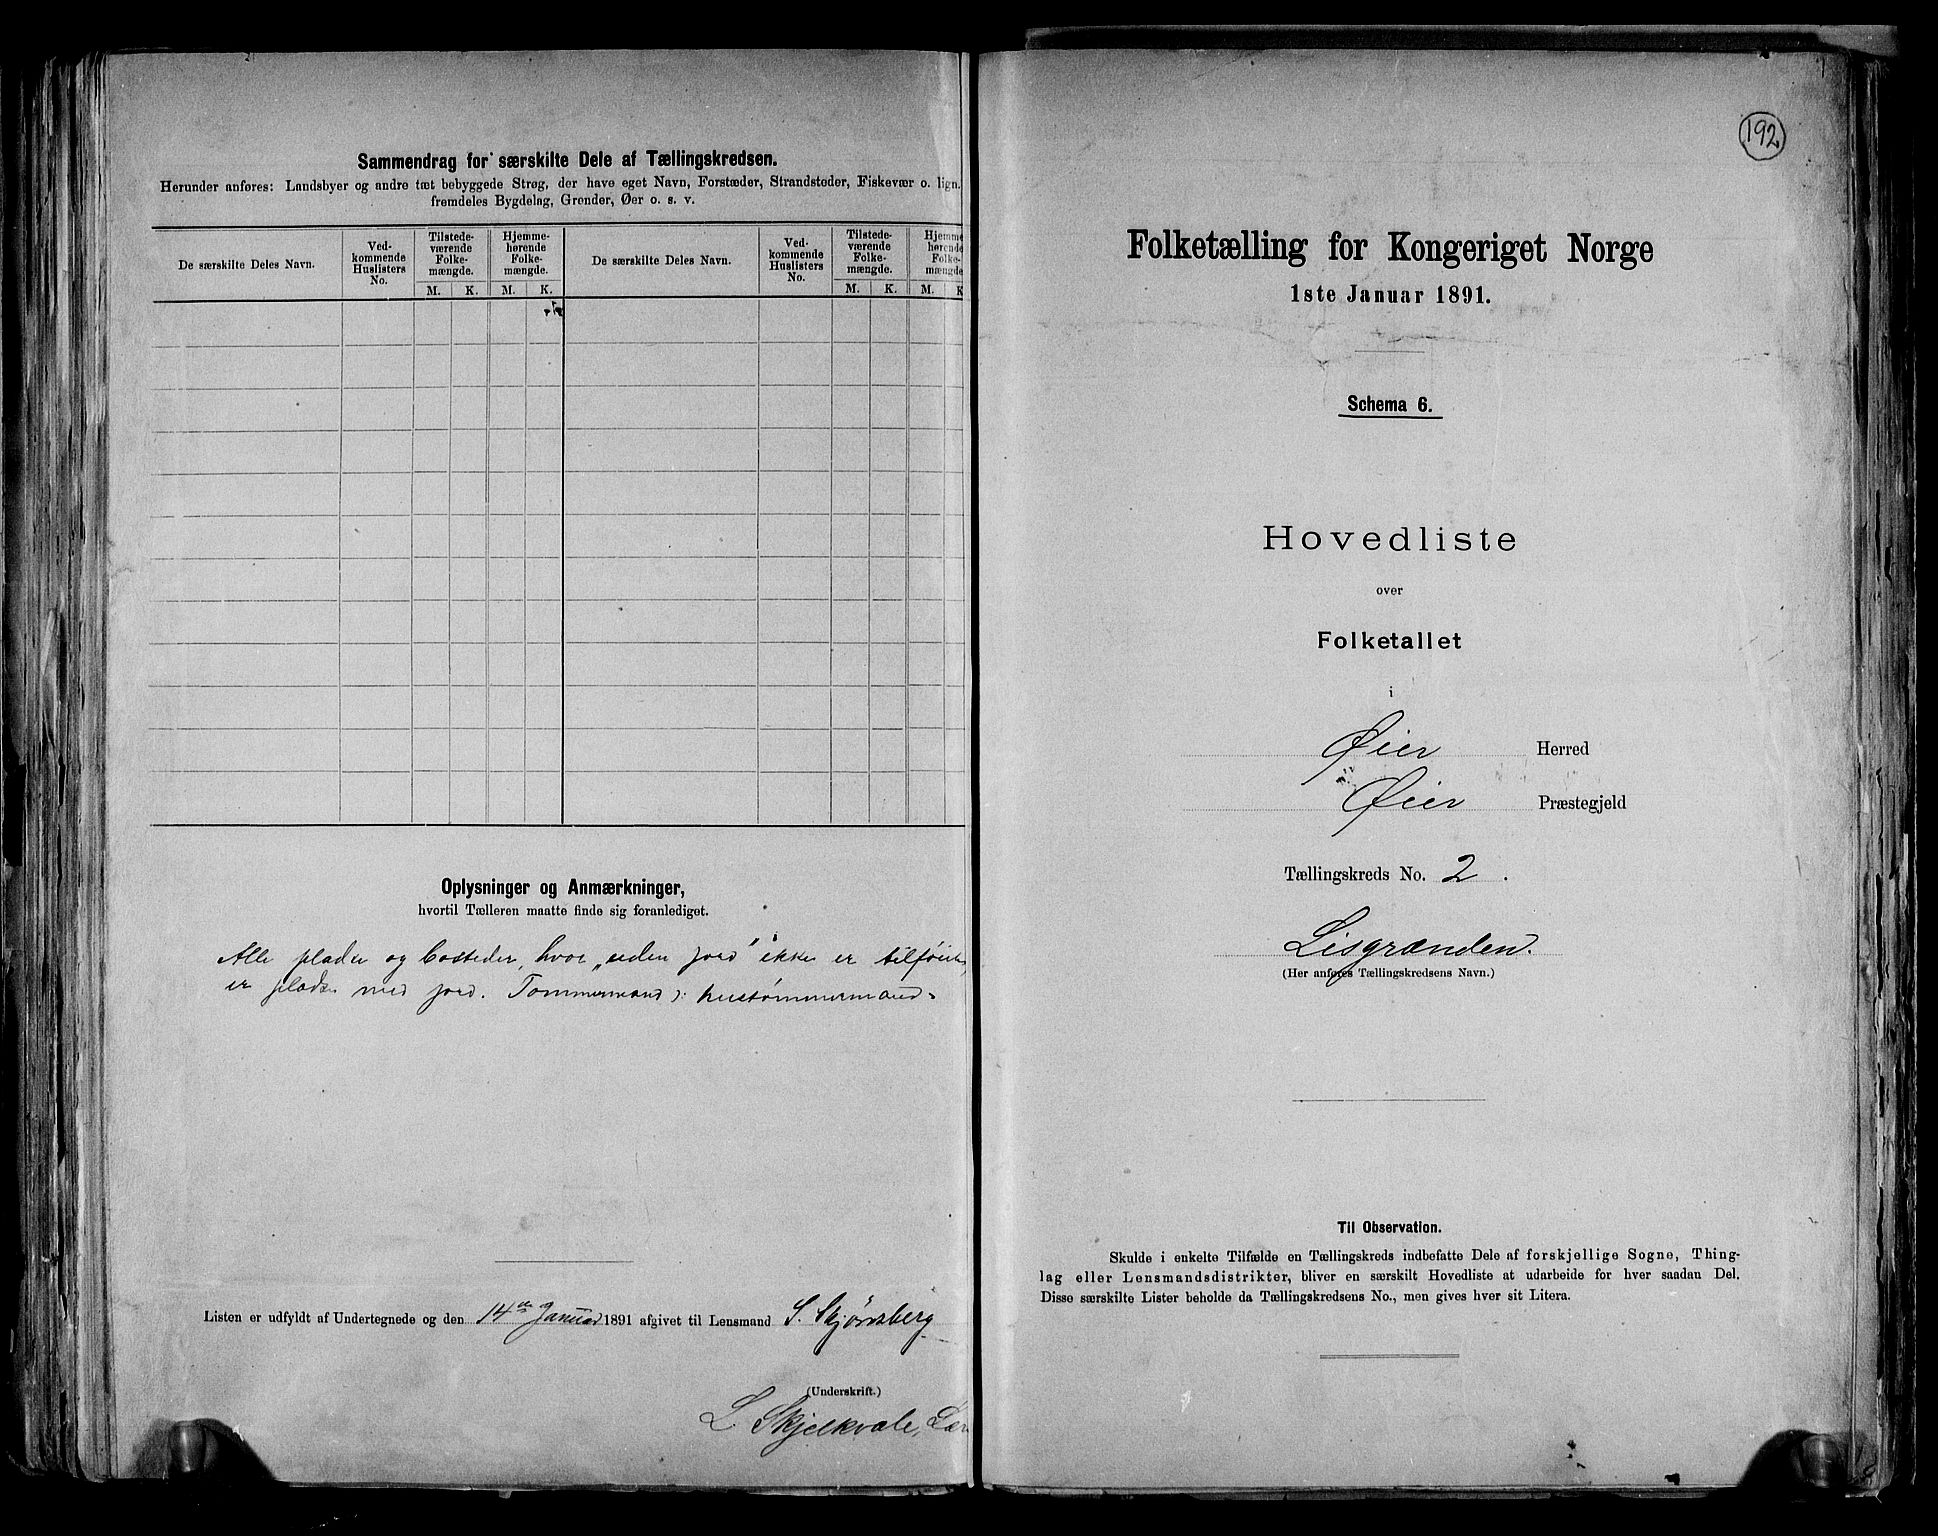 Sammendrag for særskilte Dele af Tællingskredsen.
Herunder anføres: Landsbyer og andre tæt bebyggede Strøg, der have eget Navn, Forstæder, Strandsteder, Fiskevær o. lign.
fremdeles Bygdelag, Grender, Øer o. s. v.
De særskilte Deles Navn.
Ved-
kommende
Huslisters
No.
Tilstede-
værende
Folke-
mængde.
Hjemme-
hørende
Folke-
mængde.
De særskilte Deles Navn.
Ved-
kommende
Huslisters
No.
Tilstede-
værende
Folke-
mængde.
Hjemme
hørende
Folke-
mængde
M. K. M. K. M. K. M. K
Oplysninger og Anmærkninger,
hvortil Tælleren maatte finde sig foranlediget.
Alle pladse og bosteder, hvor „uden jord" ikke er tilføiet,
er pladse med jord. Tømmermand ɔ: hustømmermand.
Listen er udfyldt af Undertegnede og den 14de Januar 1891 afgivet til Lensmand S. Skjønsberg
(Underskrift.)
L. Skjelkvale, Lær
192
Folketælling for Kongeriget Norge
1ste Januar 1891.
Schema 6.
Hovedliste
over
Folketallet
i
Øier Herred
Øier Præstegjeld
Tællingskreds No. 2.
Lisgrænden.
(Her anføres Tællingskredsens Navn.)
Til Observation.
Skulde i enkelte Tilfælde en Tællingskreds indbefatte Dele af forskjellige Sogne, Thing-
lag eller Lensmandsdistrikter, bliver en særskilt Hovedliste at udarbeide for hver saadan Del.
Disse særskilte Lister beholde da Tællingskredsens No., men gives hver sit Litera.